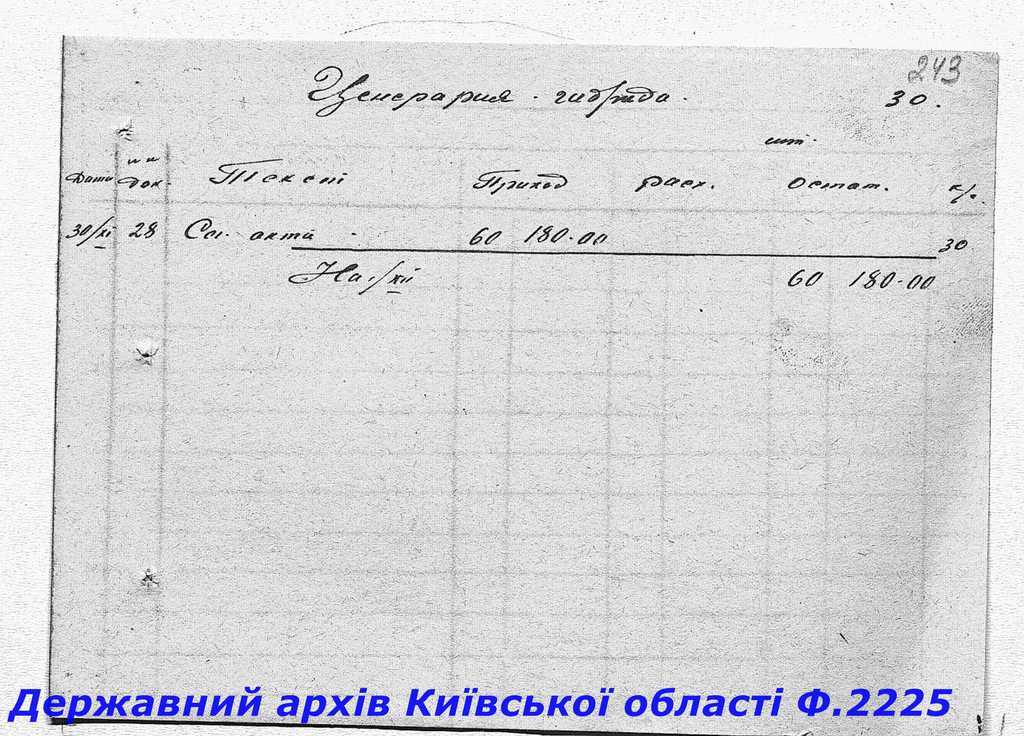 243
Ценерария гибрида. 30.
шт.
Дата №№ док. Текст Приход Расх. Остат. к/о.
30/XI 28 Сл. акта 60 180.00 30
На 1/XII 60 180.00
Державний архів Київської області Ф.2225